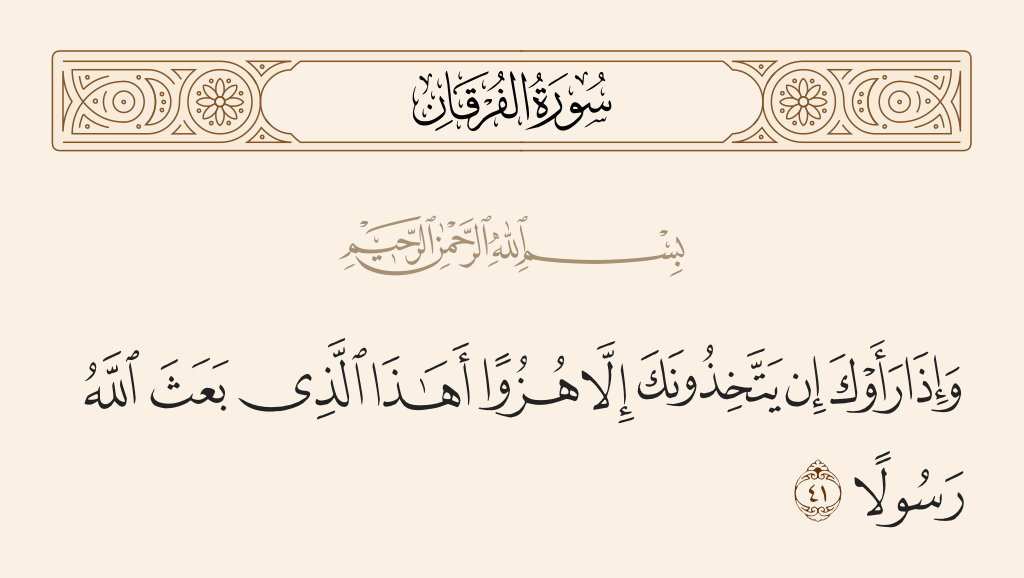 سُورَةُ الفُرْقَانِ
بِسْمِ ٱللَّهِ ٱلرَّحْمَٰنِ ٱلرَّحِيمِ
وَإِذَا رَأَوْكَ إِن يَتَّخِذُونَكَ إِلَّا هُزُوًا أَهَـٰذَا ٱلَّذِى بَعَثَ ٱللَّهُ
رَسُولًا ٤١